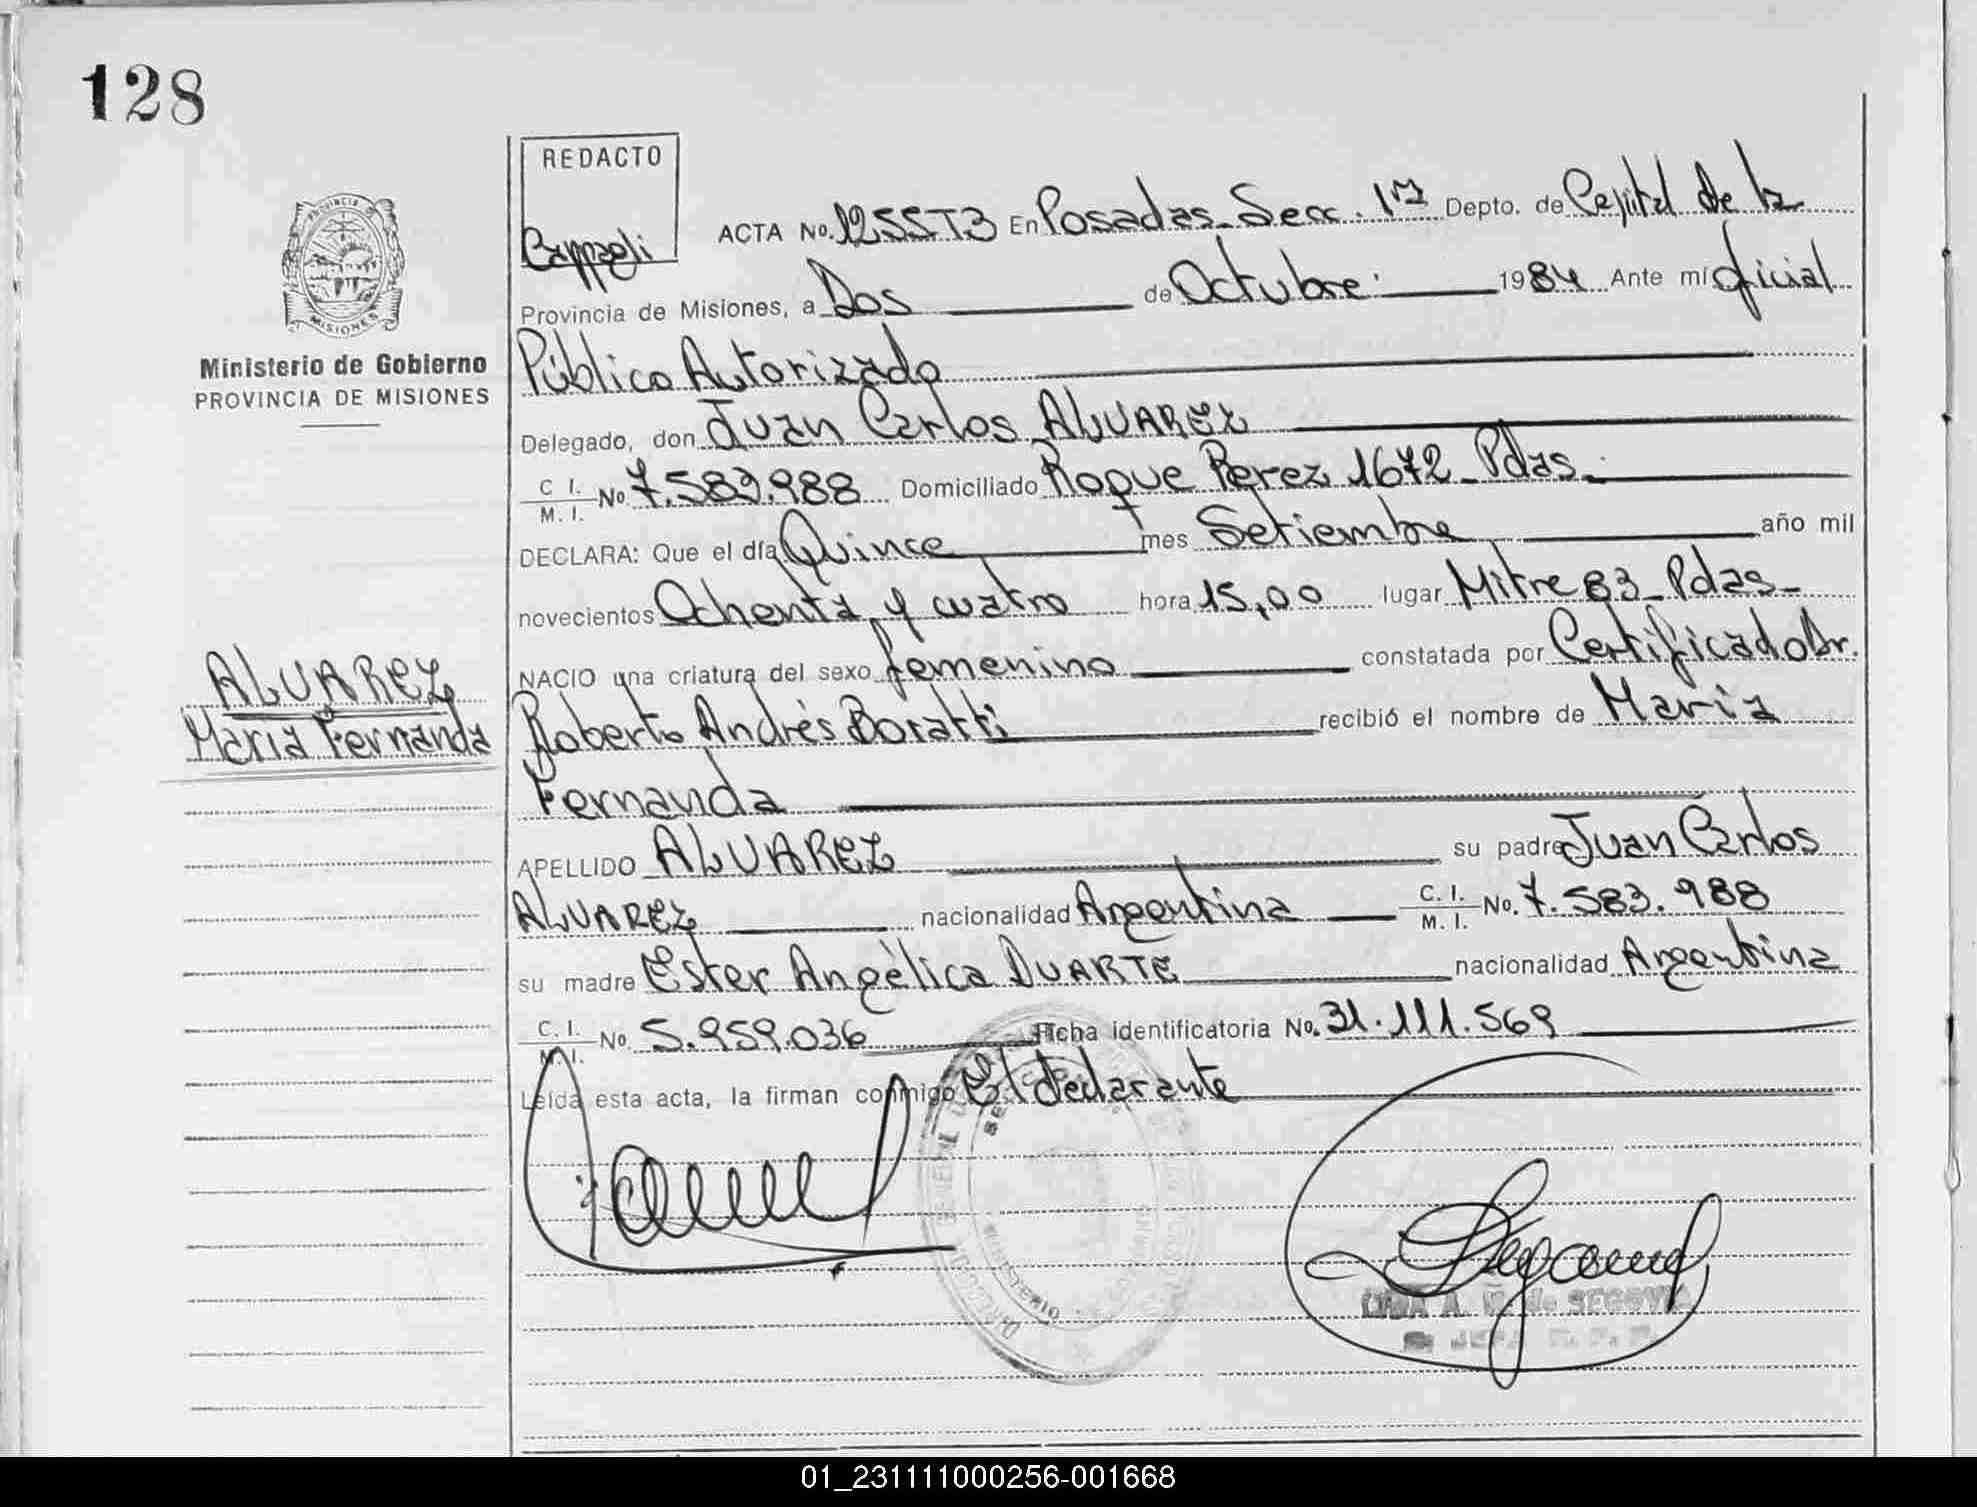 128
REDACTO
Cappagli
ACTA No. 1255T3 En Posadas Secc. 1ra Depto. de Capital de la
Provincia de Misiones, a Dos de Octubre 1984 Ante mí oficial
Público Autorizado
PROVINCIA
MISIONES
Ministerio de Gobierno
PROVINCIA DE MISIONES
Delegado, don Juan Carlos ALVAREZ
C. I. M. I. No 7.583.988 Domiciliado Roque Perez 1672 - Pdas.
DECLARA: Que el día Quince mes Setiembre año mil
novecientos Ochenta y cuatro hora 15,00 lugar Mitre 83 - Pdas -
NACIO una criatura del sexo femenino constatada por Certificado Dr.
ALVAREZ
María Fernanda
Roberto Andrés Boratti recibió el nombre de María
Fernanda
APELLIDO ALVAREZ su padre Juan Carlos
ALVAREZ nacionalidad Argentina C. I. M. I. No. 7.583.988
su madre Ester Angèlica DUARTE nacionalidad Argentina
C. I. M. I. No 5.959.036 Ficha identificatoria No. 31.111.569
Leída esta acta, la firman conmigo El declarante
de SEGOVIA
JEFA
01_231111000256-001668